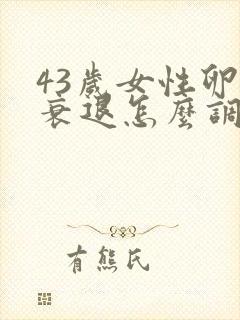 43歲女性卵
衰退怎麼調
有熊氏